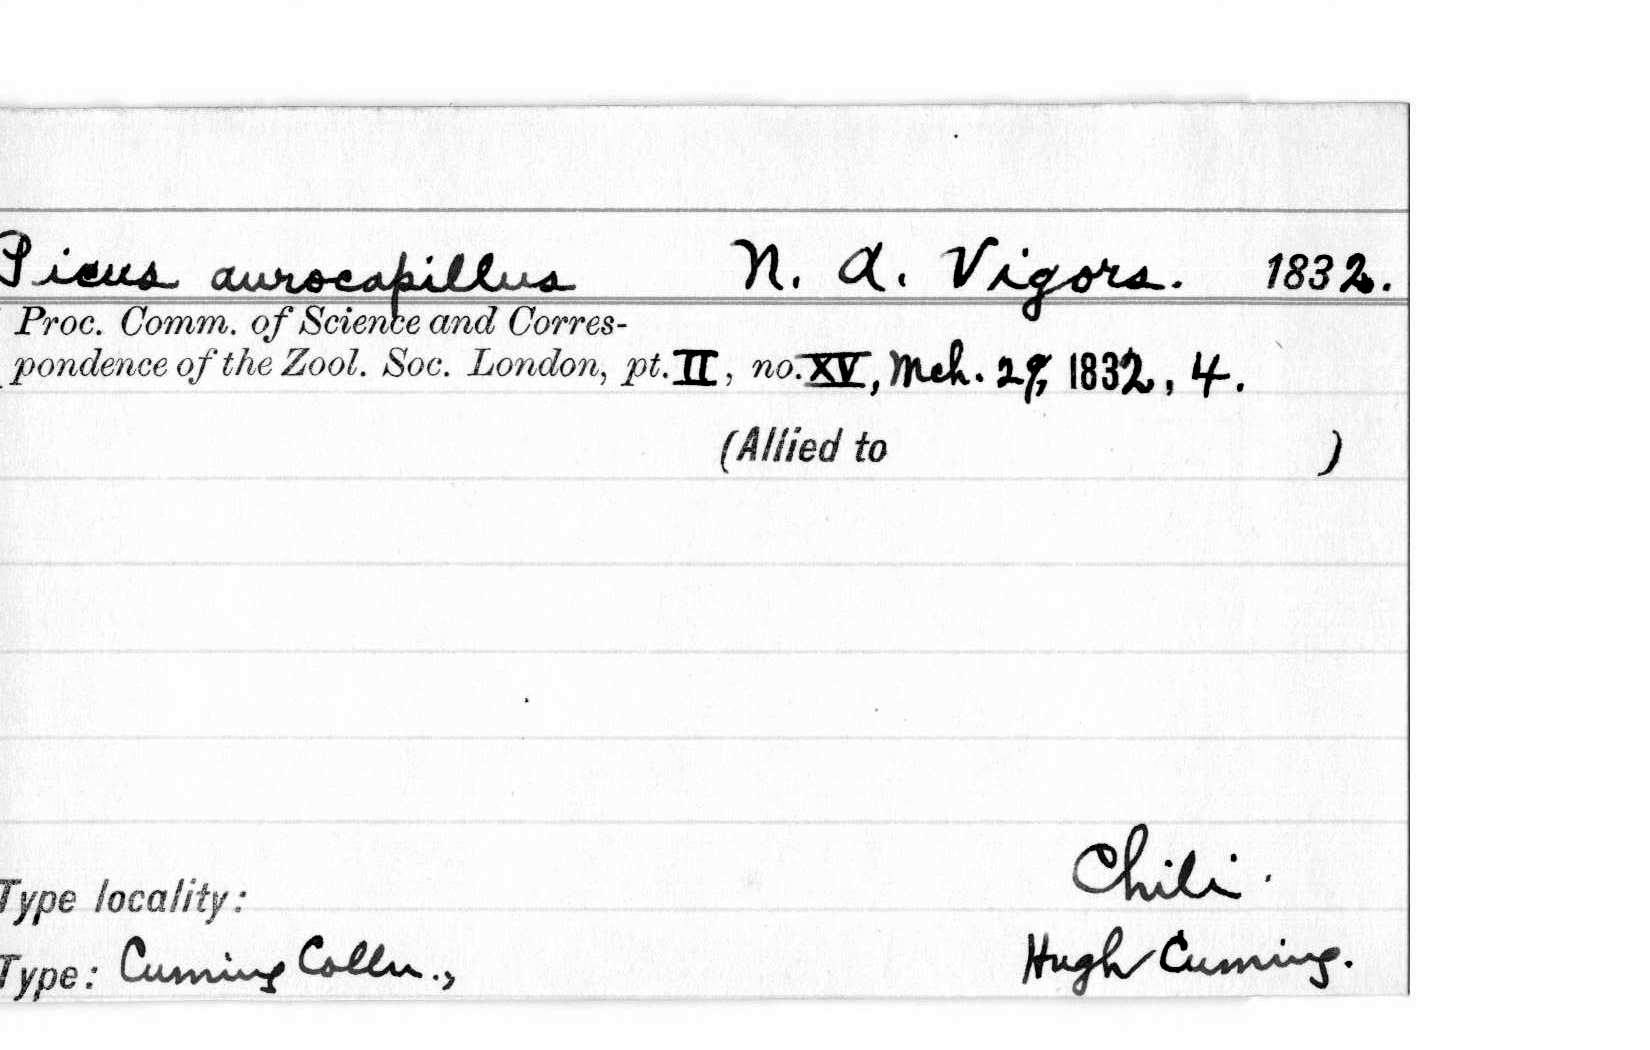 Picus aurocapillus N. A. Vigors. 1832.
Proc. Comm. of Science and Corres-
pondence of the Zool. Soc. London, pt. II, no. XV, Mch. 29, 1832, 4.
(Allied to )
Chili.
Type locality:
Type: Cuming Colln., Hugh Cuming.